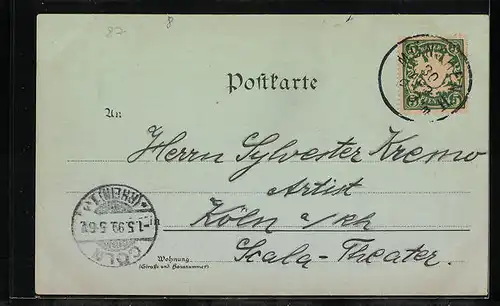 87 8
Postkarte
5
An
Herrn Sylvester Kremo
Artist
in Köln a/Rh
Scala-Theater.
Wohnung
(Straße und Hausnummer)
(RHEIN) 1
1.5.99. 5-6
CÖLN
30